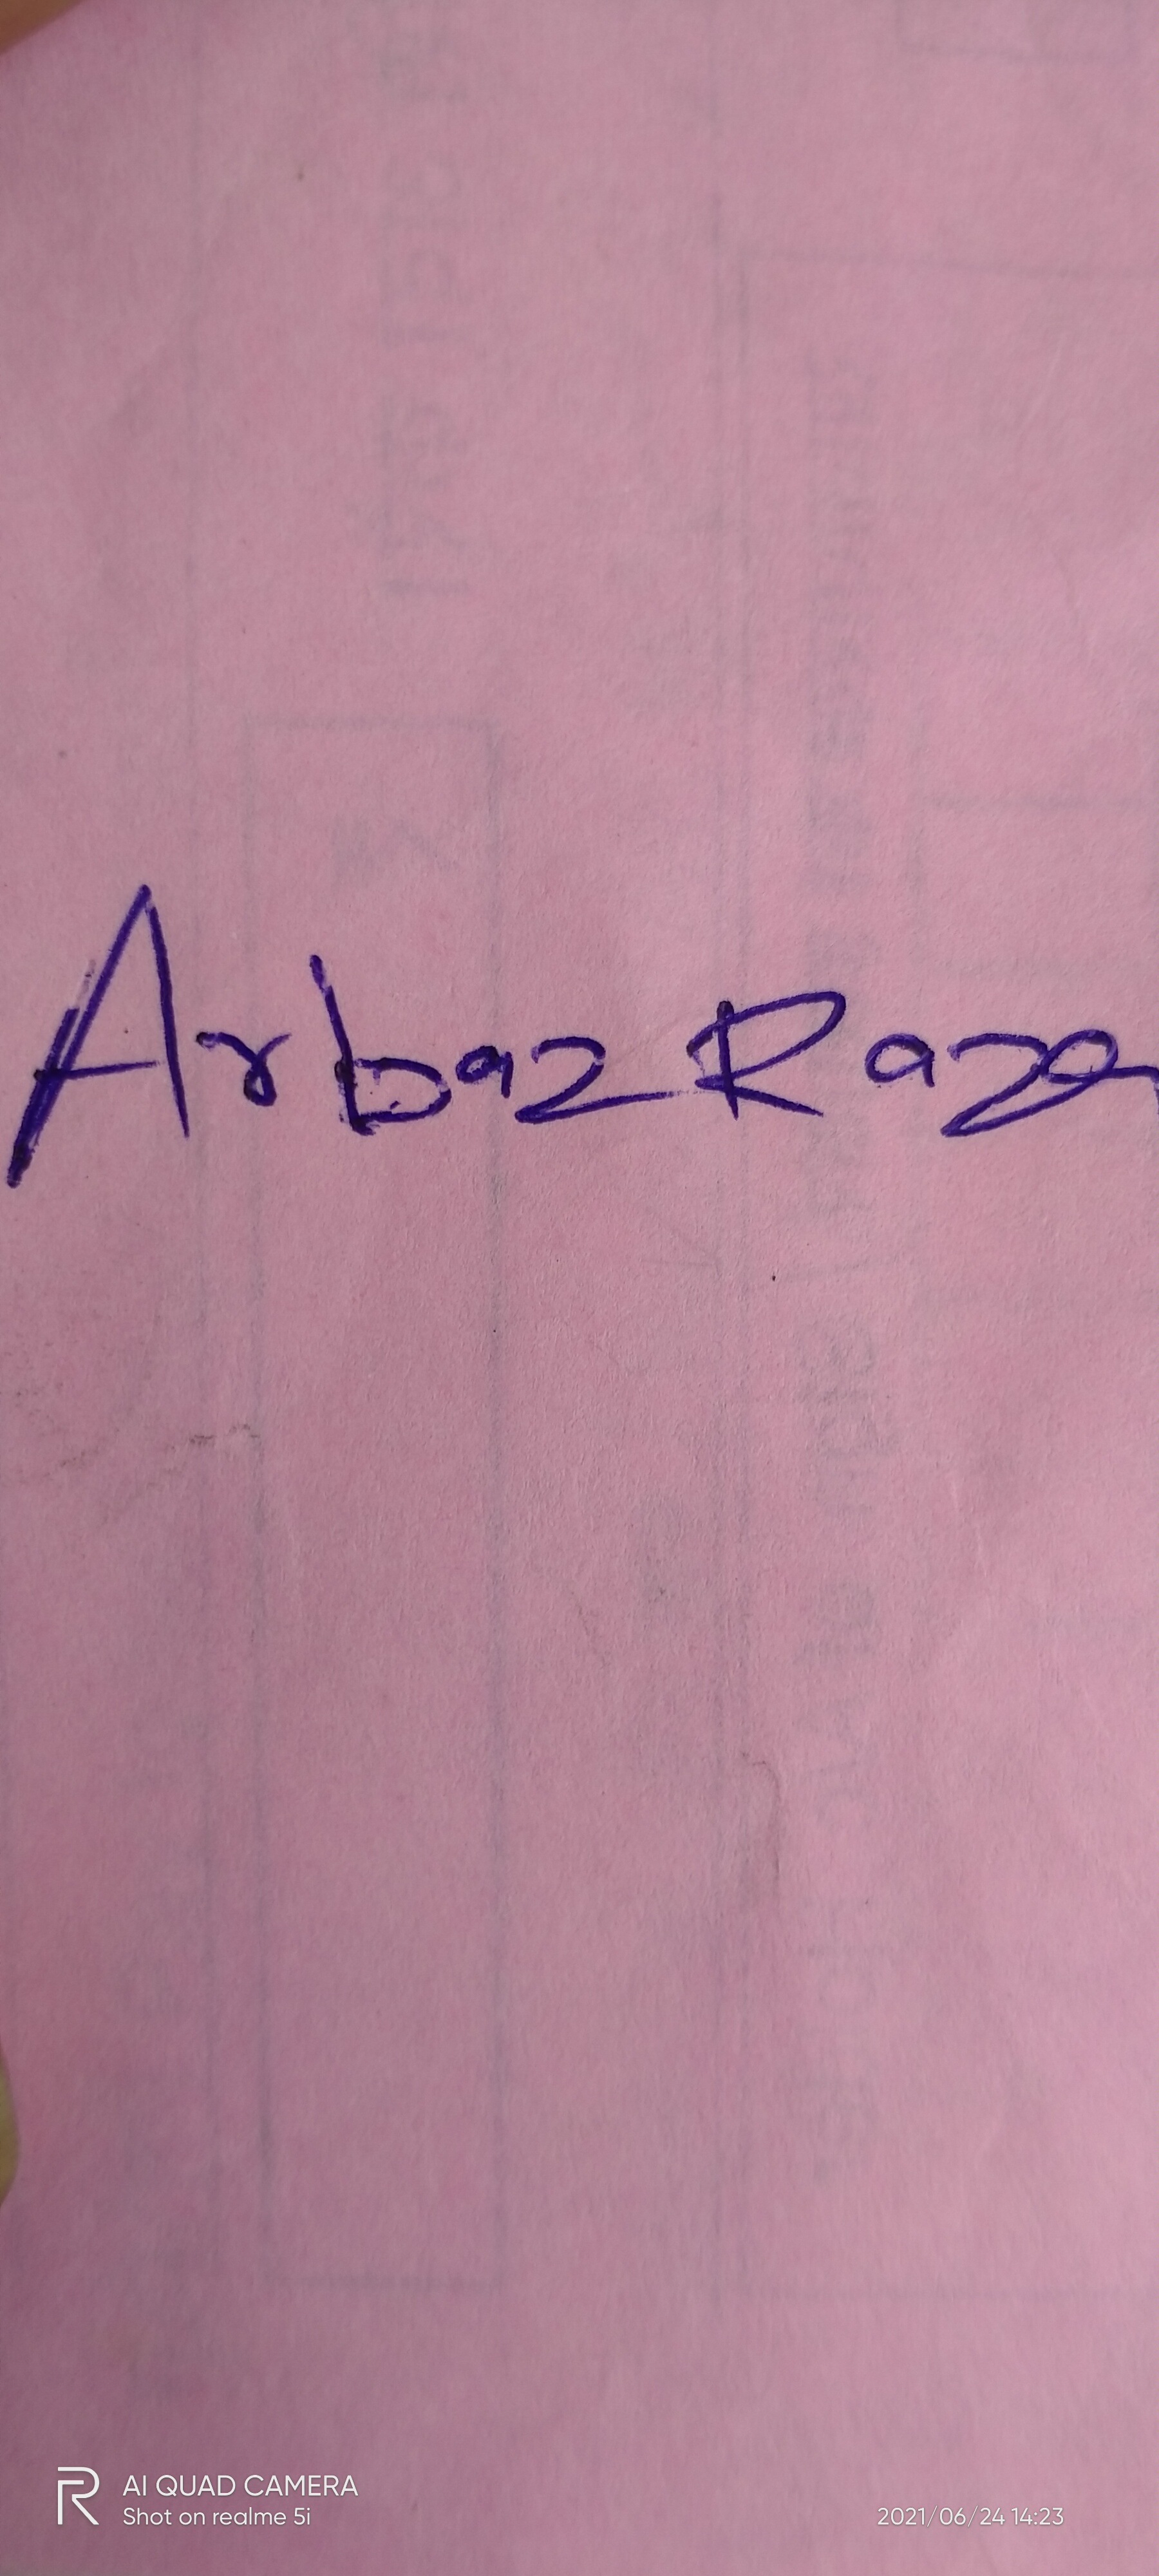 Arbaz Raza
AI QUAD CAMERA
Shot on realme 5i
2021/06/24 14:23